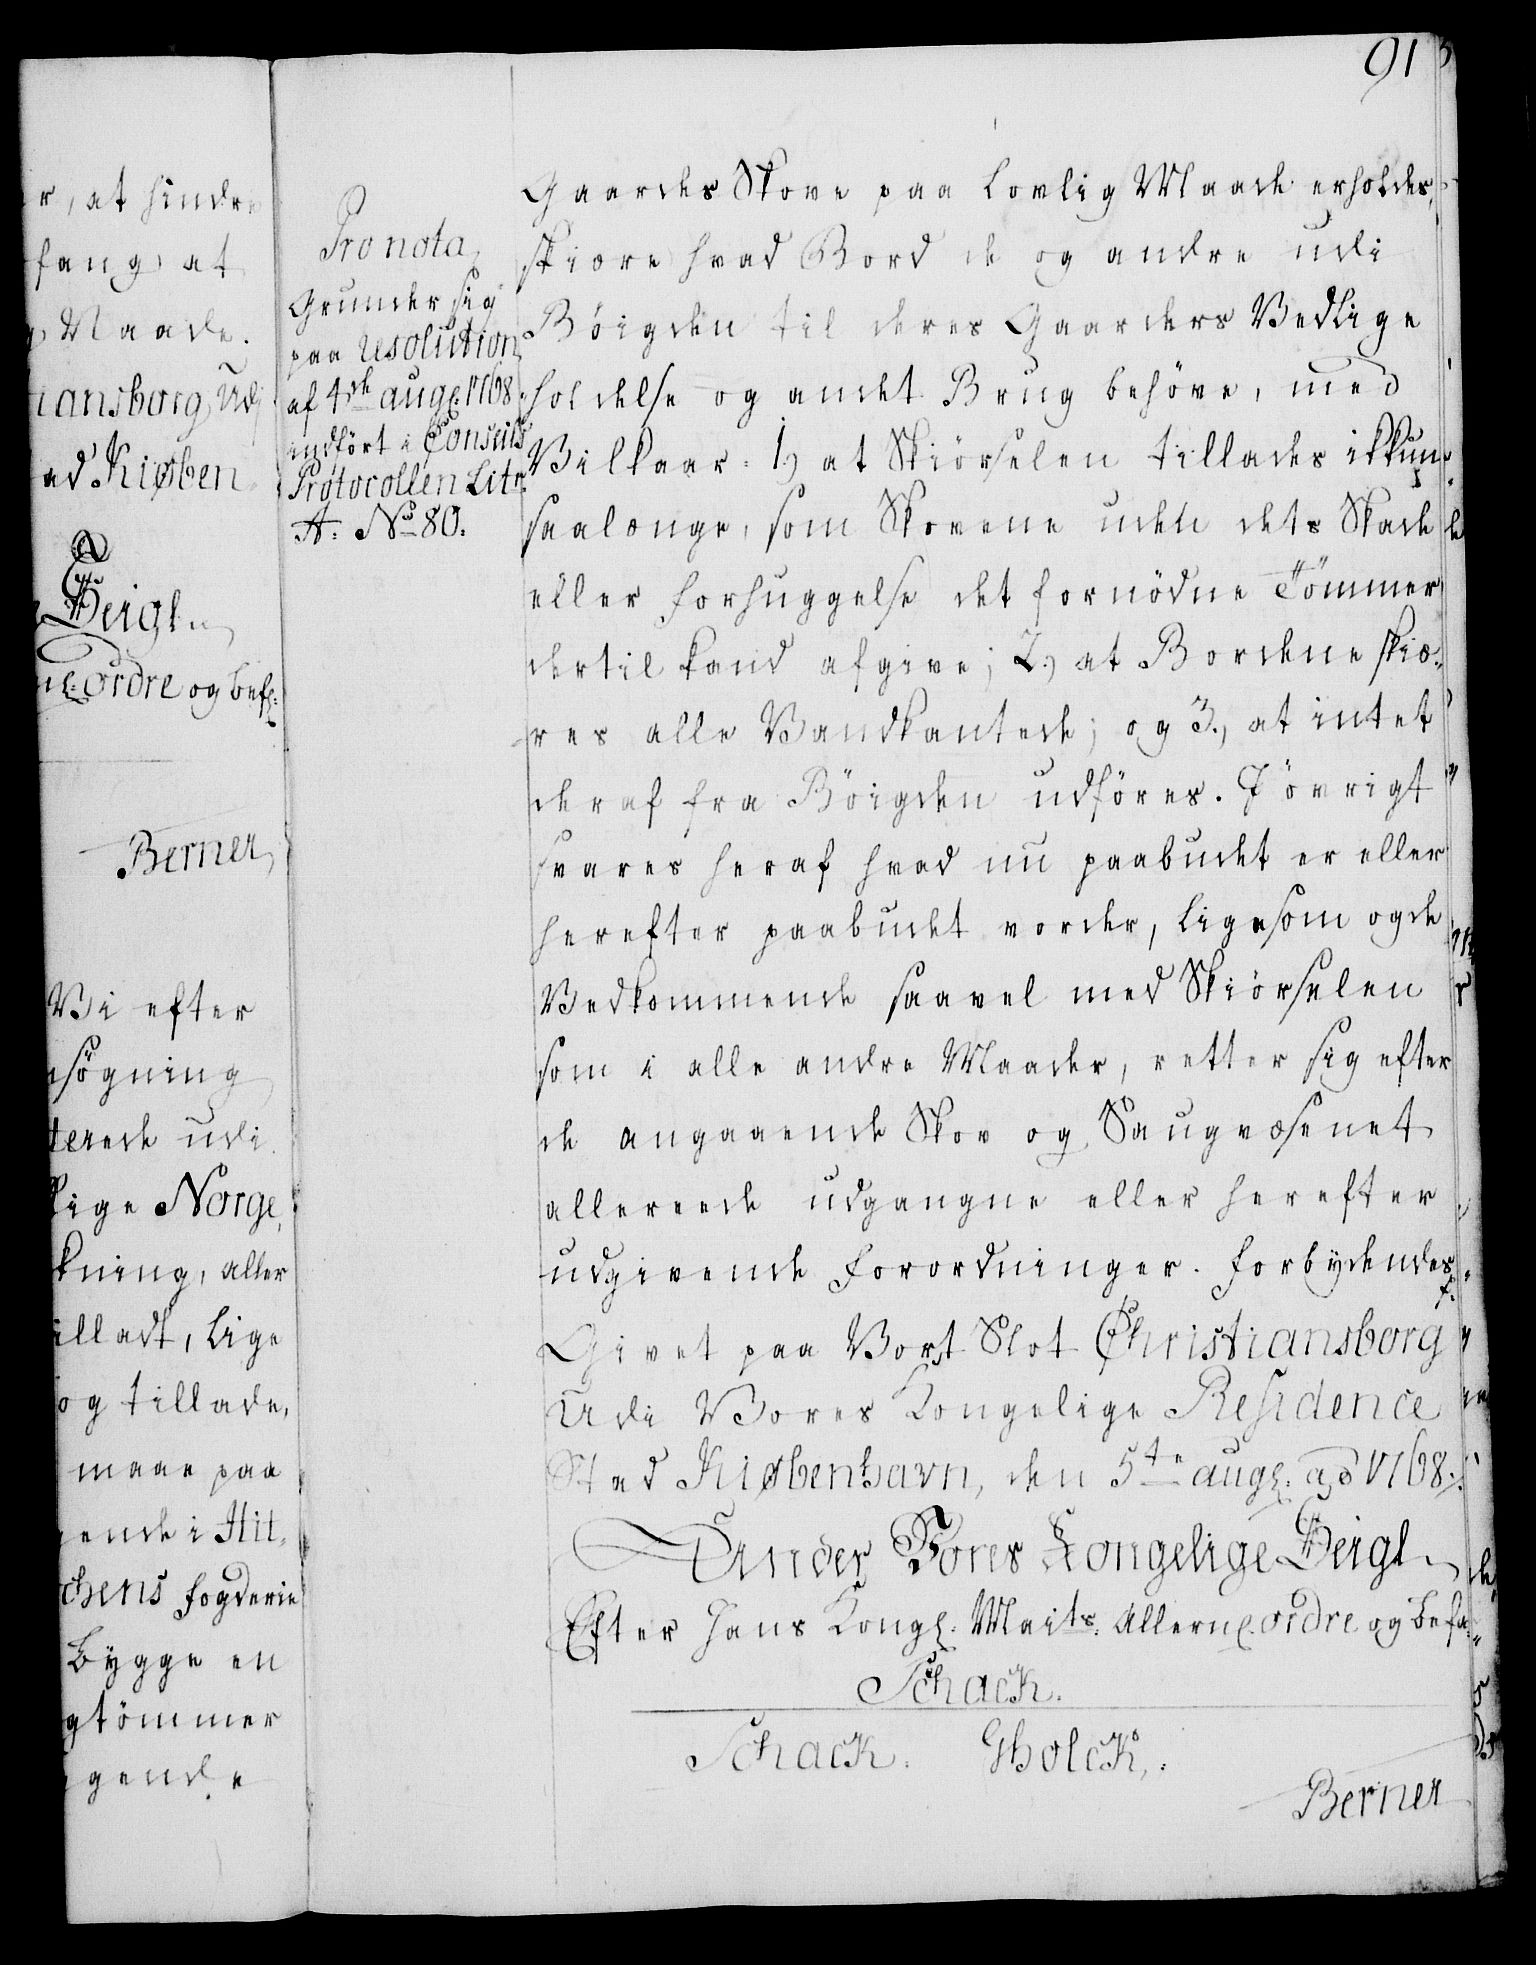 91
r, at hindre
fang at
Maade.
iansborg, Udi
ad Kiøben
Seigl.
ordre og bef:
Berner
Vi efter
søgning
terede udi
Rige Norge,
kning, aller
illadt, lige
og tillade,
maae paa
ende i Hit,,
chens fogderie
bygge en
gtömmer
gende
Pro nota
Grunder sig
paa resolution
af 4de aug: 1768.
indført i Conseils
Protocollen Litr.
A. No 80.
Gaardes Skove paa lovlig Maade erholdes,
skiære hvad Bord de og andre udi
Böigden til deres Gaarders Vedlige
holdelse og andet Brug behöve, med
Vilkaar: 1.) at Skiörselen tillades ikkun
saalænge, som Skovene uden dets Skade
eller forhuggelse det fornödne Tömmer
dertil kand afgive; 2.) at Bordene skiæ,,
res alle Vandkantede; og 3., at intet
deraf fra Böigden udföres. I övrigt
svares heraf hvad nu paabudet er eller
herefter paabudet vorder, ligesom og de
Vedkommende saavel med Skiörselen
som i alle andre Maader, retter sig efter
de angaaende Skov og Saugvæsenet
allereede udgangne eller herefter
udgivende forordninger. forbydendes
Givet paa Vort Slot Christiansborg
Udi Vores Kongelige Residence
Stad Kiøbenhavn, den 5te aug: ao 1768.
Under Vores Kongelige Seigl.
Efter Hans Kongl. Maits. allern. ordre og befa,,
Schack.
Schack. GHolck.
Berner